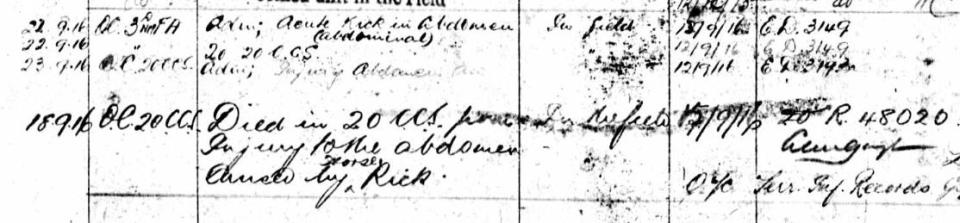 in the Field
22.9.16 O.C. 3rd FA Adm; Acute Kick in Abdomen In field 12/9/16 E.D. 3149
(abdominal)
22.9.16 " 20 20 C.C.S. " 12/9/16 E.D. 3149
23.9.16 O.C. 20 CCS. Adm; Injury Abdomen " 12/9/16 E.D.
18 9 16 O.C. 20 CCS. Died in 20 CCS. from In the field 12/9/16 R. 48020.
Injury to the abdomen
Horses
caused by ^ Kick.
Inf. Records